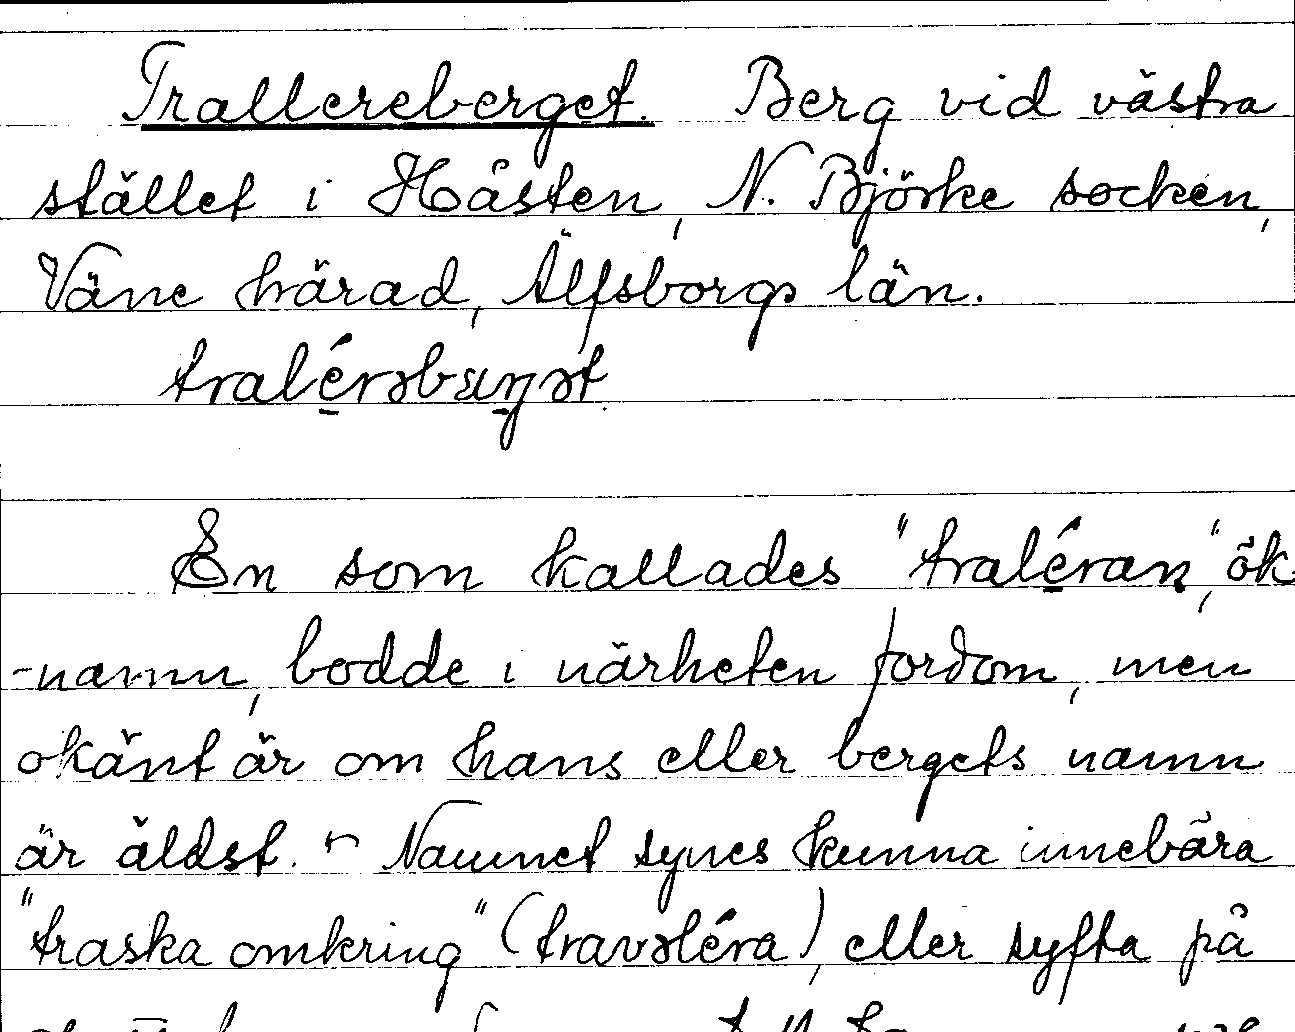 Trallereberget. Berg vid västra
stället i Håsten, N. Björke socken,
Väne härad, Älfsborgs län.
En som kallades "traléran", ök-
-namn, bodde i närheten fordom, men
okänt är om hans eller bergets namn
är äldst. Namnet synes kunna innebära
"traska omkring" (travəléra), eller syfta på